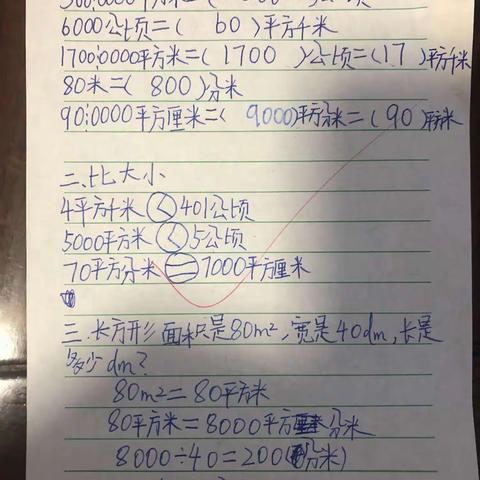 6000公顷=( 60 )平方千米
17000000平方米=( 1700 )公顷=(17 )平方千米
80米=( 800 )分米
900000平方厘米=( 9000)平方分米=( 90 )平方米
二.比大小
4平方千米<401公顷
5000平方米<5公顷
70平方分米=7000平方厘米
三.长方形面积是80m²,宽是40dm,长是
多少dm?
80m²=80平方米
80平方米=8000平方分米
8000÷40=200(分米)